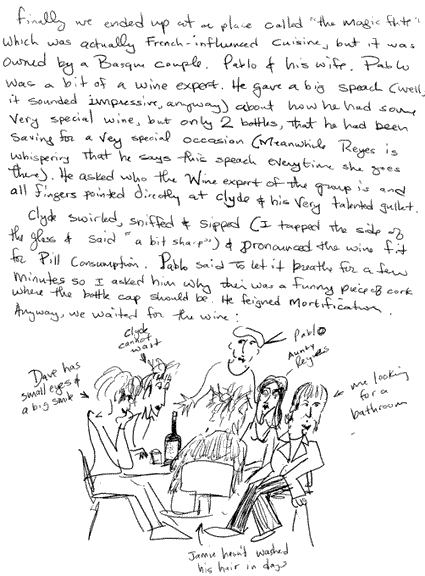 Finally we ended up at a place called "the magic flute"
which was actually French-influenced Cuisine, but it was
owned by a Basque couple. Pablo & his wife. Pablo
was a bit of a wine expert. He gave a big speach (well,
it sounded impressive, anyway) about how he had some
very special wine, but only 2 bottles, that he had been
saving for a very special occasion (Meanwhile Reyes is
whispering that he says this speach everytime she goes
there). He asked who the Wine expert of the group is and
all fingers pointed directly at Clyde & his very talented gullet.
Clyde swirled, sniffed & sipped (I tapped the side of
the glass & said "a bit sharp") & pronounced the wine fit
for Pill Consumption. Pablo said to let it breathe for a few
minutes so I asked him why there was a funny piece of cork
where the bottle cap should be. He feigned mortification.
Anyway, we waited for the wine:
Clyde
cannot
wait
Pablo
Aunty
Reyes
Dave has
small eyes &
a big smile
me looking
for a
bathroom
Jamie hasn't washed
his hair in days